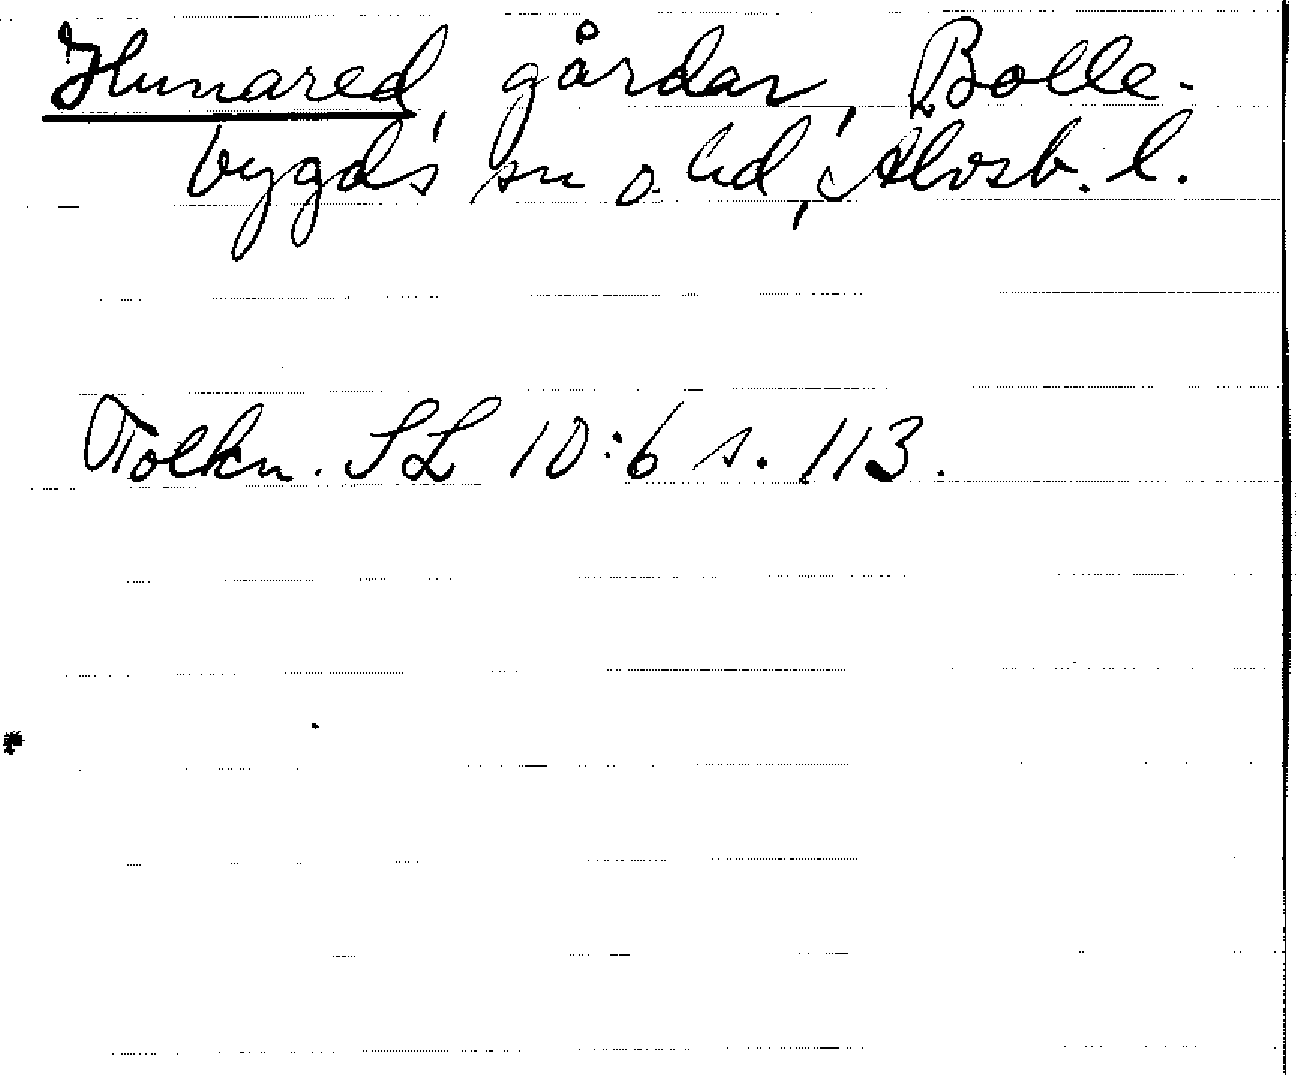 Hunared, gårdar, Bolle-
bygds sn o. hd, Älvsb. l.
Tolkn. SL 10:6 s. 113.